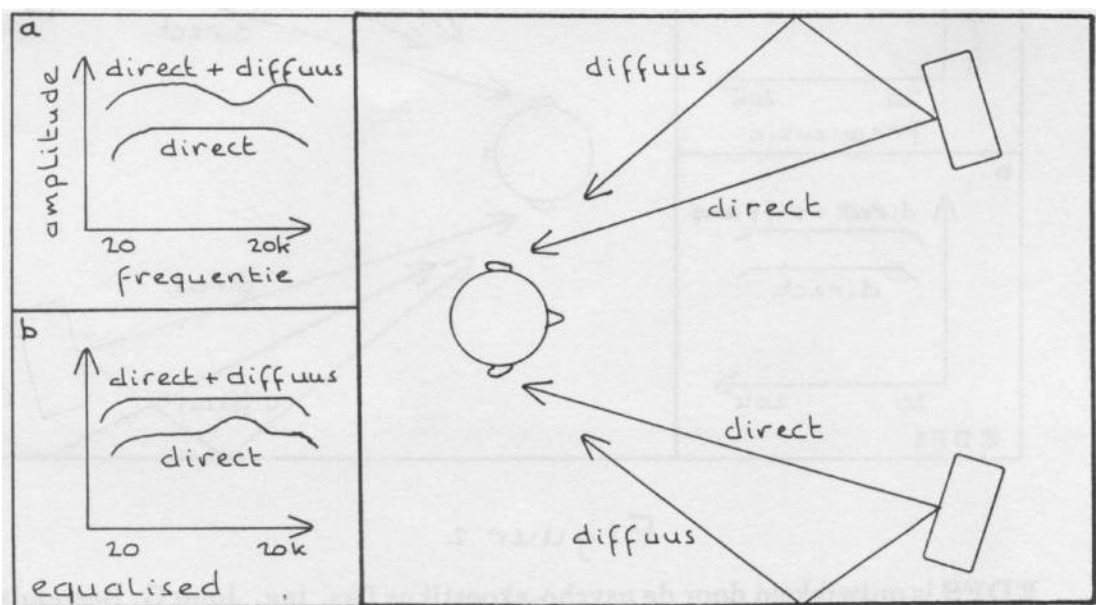 a
amplitude
direct + diffuus
direct
20 20k
frequentie
b
direct + diffuus
direct
20 20k
equalised
diffuus
direct
direct
diffuus